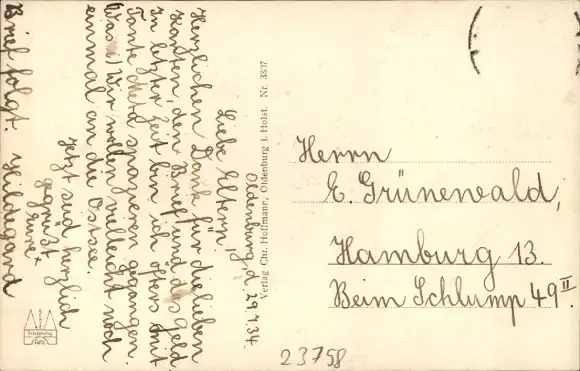 Oldenburg, d. 29.7.34.
Liebe Eltern,
Herzlichen Dank für die lieben
Karten, den Brief und das Geld.
In letzter Zeit bin ich öfters mit
Tante Meta spazieren gegangen.
Wir wollen vielleicht noch
einmal an die Ostsee.
Jetzt seid herzlich
gegrüßt
Eure
Hildegard
Brief folgt.
Verlag Chr. Hoffmann, Oldenburg i. Holst. Nr. 3807
Herrn
E. Grünewald,
Hamburg 13.
Beim Schlump 49 II
23758